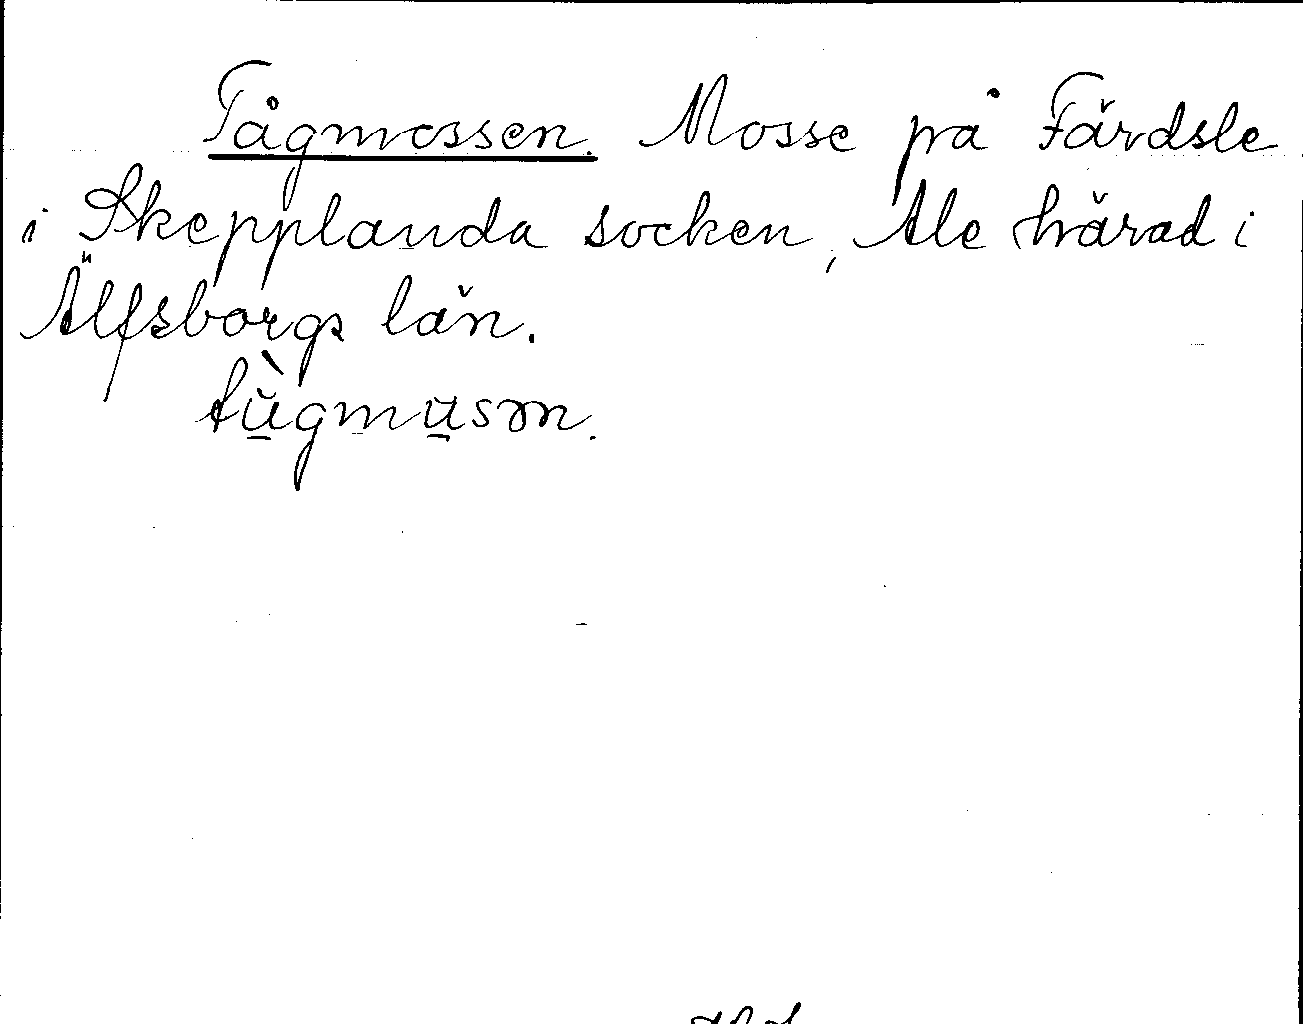 Tågmossen. Mosse på Färdsle
i Skepplanda socken, Ale härad i
Älfsborgs län.
tùgmusən.